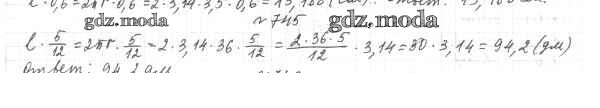 ℓ · 0,6 = 2πr · 0,6 = 2 · 3,14 · 3,5 · 0,6 = 13,188
gdz.moda
№ 745
gdz.moda
ℓ · 5/12 = 2πr · 5/12 = 2 · 3,14 · 36 · 5/12 = 2 · 36 · 5/12 · 3,14 = 30 · 3,14 = 94,2 (дм)
Ответ: 94,2 дм